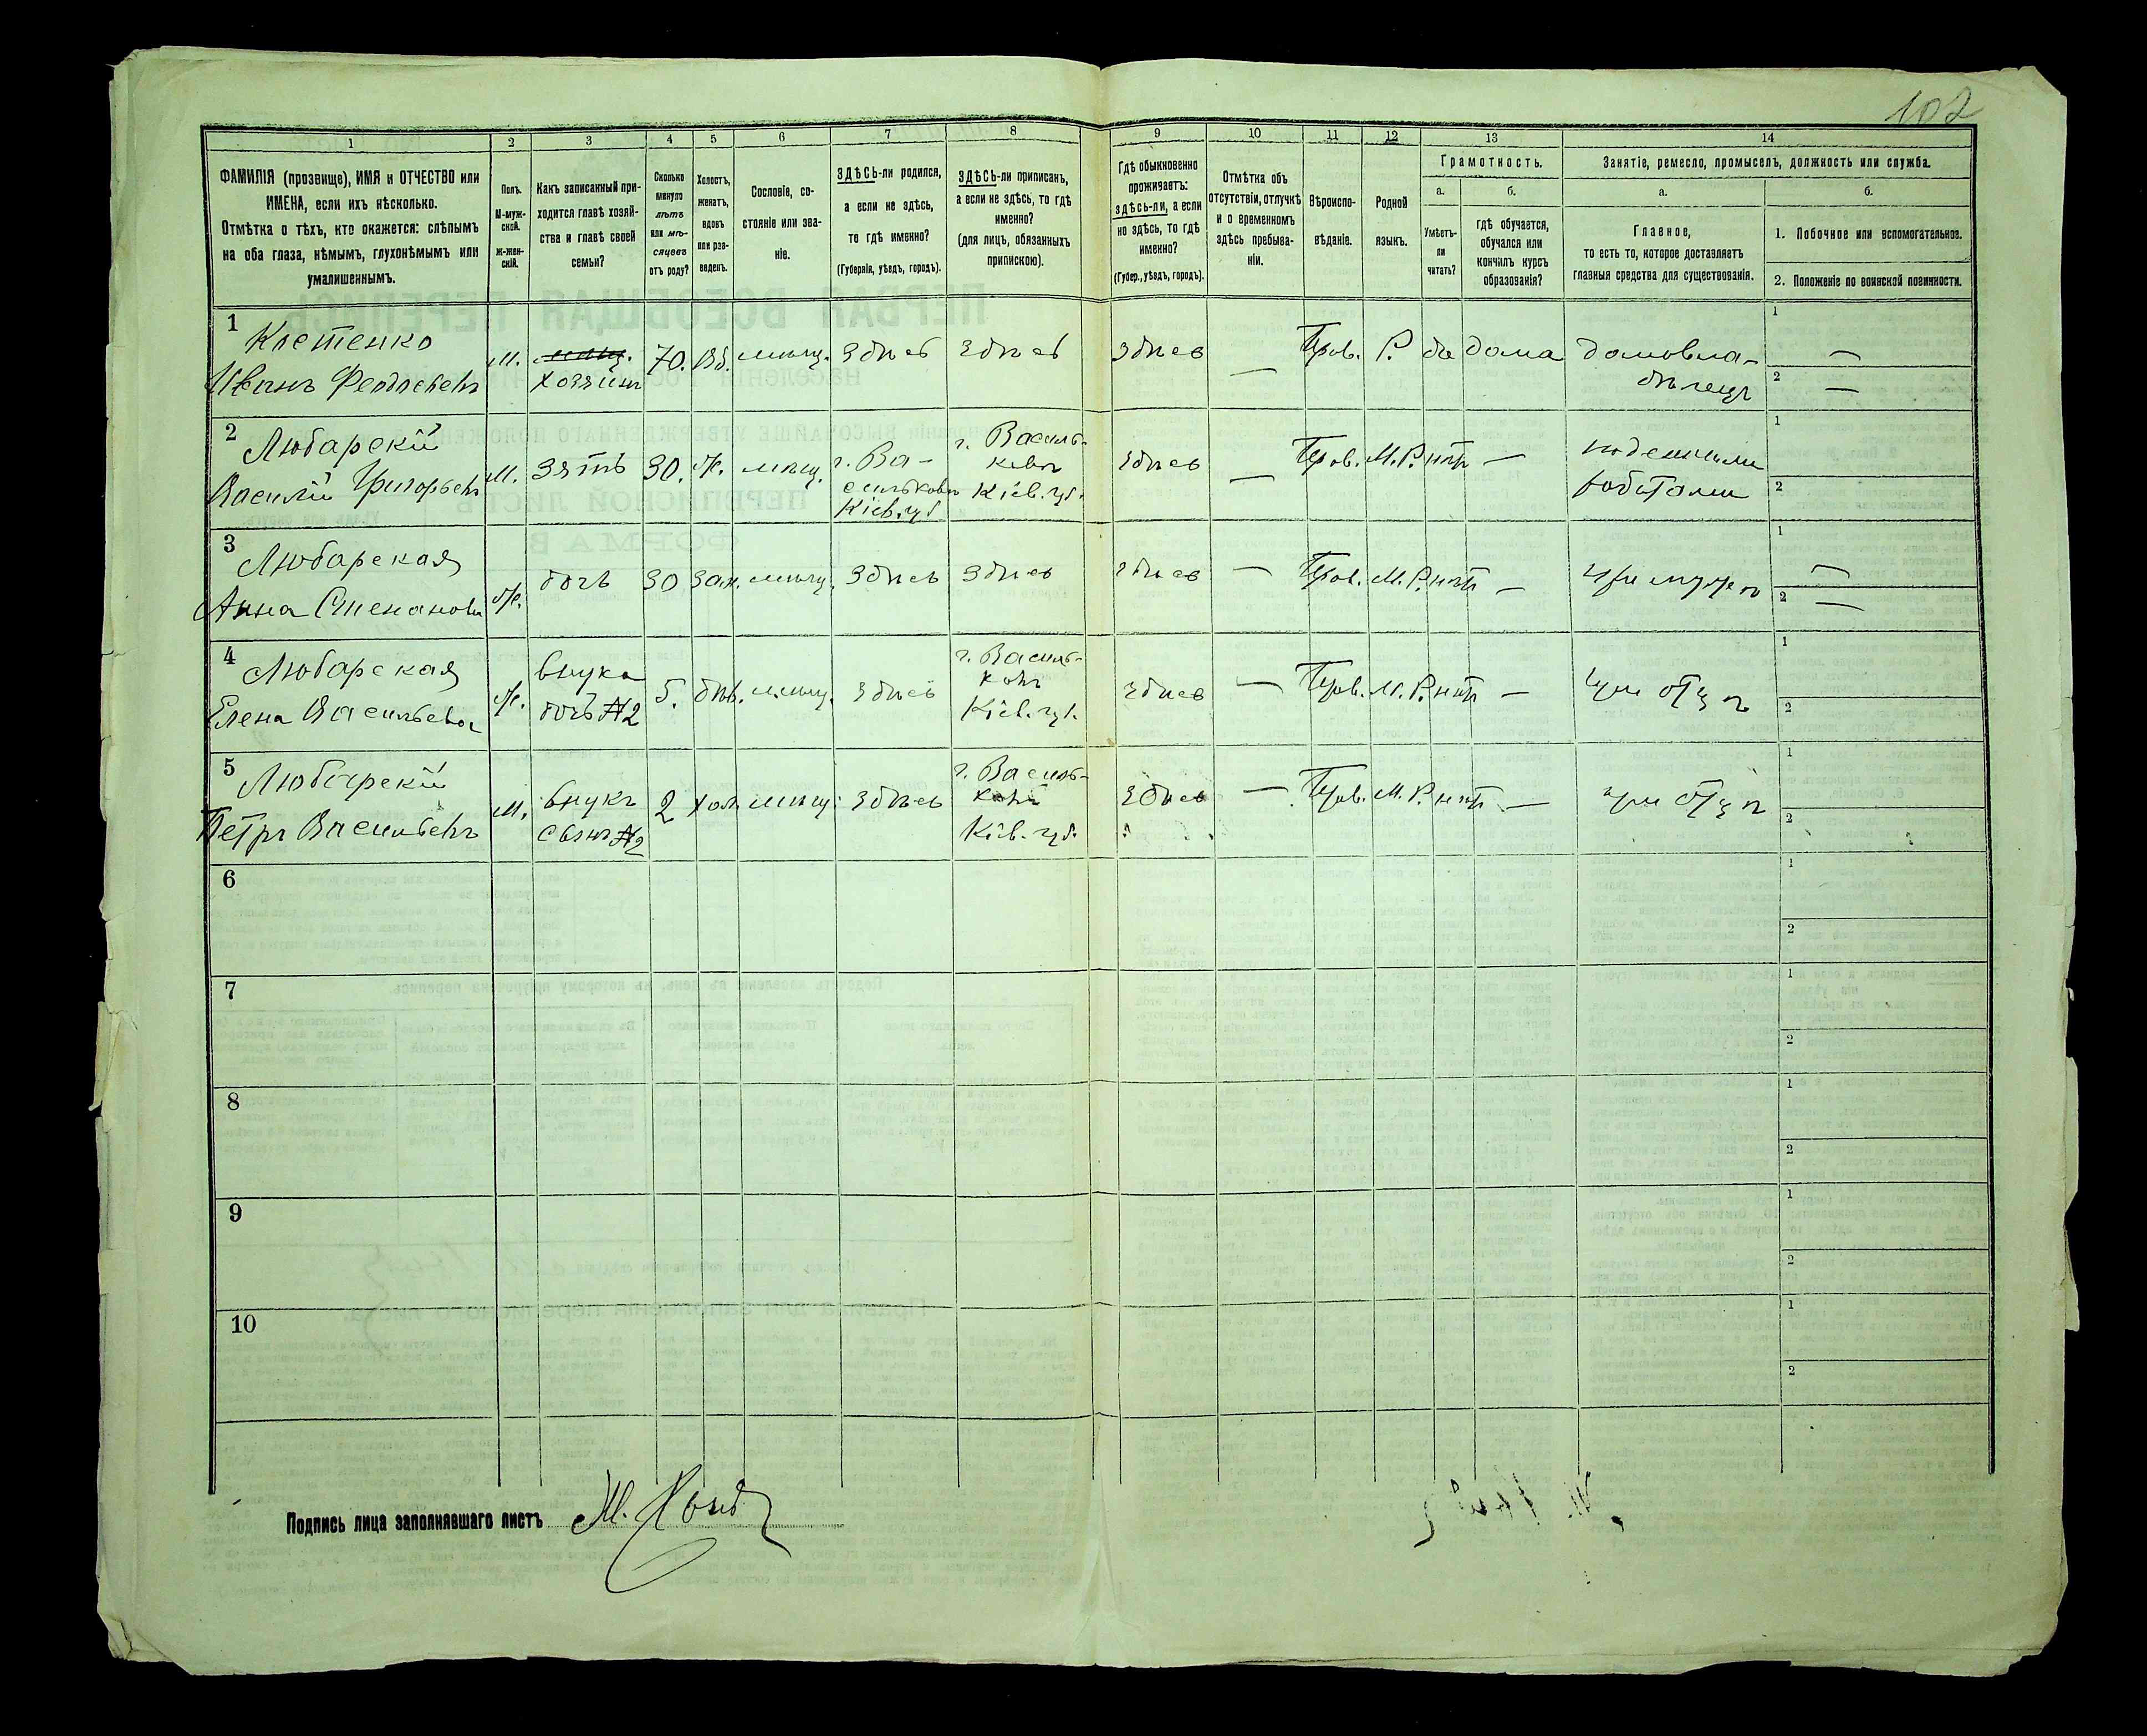 102
1 2 3 4 5 6 7 8 9 10 11 12 13 14
ФАМИЛІЯ (прозвище), ИМЯ и ОТЧЕСТВО или
ИМЕНА, если ихъ нѣсколько.
Отмѣтка о тѣхъ, кто окажется: слѣпымъ
на оба глаза, нѣмымъ, глухонѣмымъ или
умалишеннымъ.
Полъ.
М-муж-
ской.
ж-жен-
скій.
Какъ записанный при-
ходится главѣ хозяй-
ства и главѣ своей
семьи?
Сколько
минуло
лѣтъ
или мѣ-
сяцевъ
отъ роду?
Холостъ,
женатъ,
вдовъ
или раз-
веденъ.
Сословіе, со-
стояніе или зва-
ніе.
ЗДѢСЬ-ли родился,
а если не здѣсь,
то гдѣ именно?
(Губернія, уѣздъ, городъ).
ЗДѢСЬ-ли приписанъ,
а если не здѣсь, то гдѣ
именно?
(для лицъ, обязанныхъ
припискою).
Гдѣ обыкновенно
проживаетъ:
здѣсь-ли, а если
не здѣсь, то гдѣ
именно?
(Губер., уѣздъ, городъ).
Отмѣтка объ
отсутствіи, отлучкѣ
и о временномъ
здѣсь пребыва-
ніи.
Вѣроиспо-
вѣданіе.
Родной
языкъ.
Грамотность.
а.
Умѣетъ-
ли
читать?
б.
гдѣ обучается,
обучался или
кончилъ курсъ
образованія?
Занятіе, ремесло, промыселъ, должность или служба.
а.
Главное,
то есть то, которое доставляетъ
главныя средства для существованія.
б.
1. Побочное или вспомогательное.
2. Положеніе по воинской повинности.
1 Костенко
Иванъ Федосѣевъ м. хозяинъ 70. вд. мѣщ. Здѣсь Здѣсь Здѣсь — Прав. Р. да дома домовла-
дѣлецъ
1 —
2 —
2 Любарскій
Василій Григорьевъ м. зять 30. ж. мѣщ. г. Ва-
сильковъ
Кіев. губ. г. Василь-
ковъ
Кіев. губ. Здѣсь — Прав. М.Р. нѣтъ — поденными
работами
1
2
3 Любарская
Анна Степанова ж. дочь 30 зам. мѣщ. Здѣсь Здѣсь Здѣсь — Прав. М.Р. нѣтъ — при мужѣ
1 —
2 —
4 Любарская
Елена Васильева ж. внука
дочь №2 5. дѣв. мѣщ. Здѣсь г. Василь-
ковъ
Кіев. губ. Здѣсь — Прав. М.Р. нѣтъ — при отцѣ
1
2
5 Любарскій
Петръ Васильевъ м. внукъ
сынъ №2 2 хол. мѣщ. Здѣсь г. Василь-
ковъ
Кіев. губ. Здѣсь — Прав. М.Р. нѣтъ — при отцѣ
1
2
6
1
2
7
1
2
8
1
2
9
1
2
10
1
2
Подпись лица заполнявшаго листъ